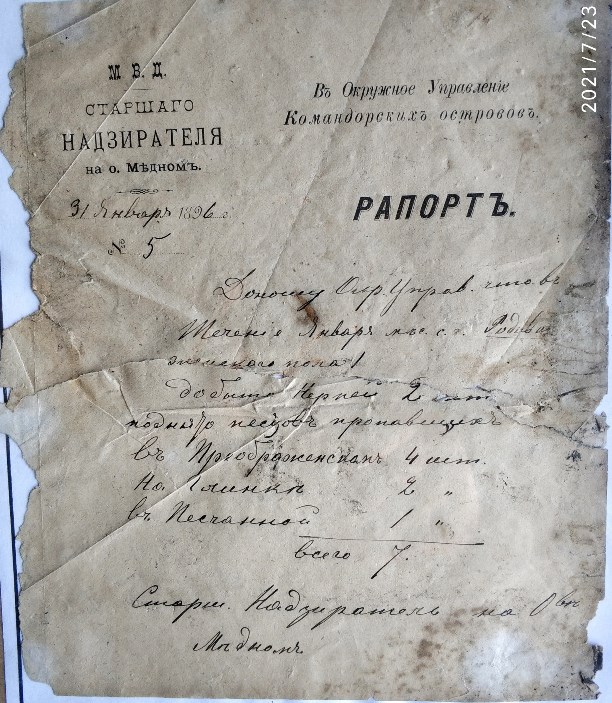 М. В. Д.
СТАРШАГО
НАДЗИРАТЕЛЯ
на о. Мѣдномъ.
31 Январъ 1896 г.
№ 5
Въ Окружное Управленіе
Командорскихъ острововъ.
РАПОРТЪ.
Доношу Окр. Управ. что въ
течение Январъ мѣс. с. г.
женскаго пола 1
добыто Черпеи 2 шт
поднято песцовъ пропавшихъ
въ Преображенскомъ 4 шт.
На Глинкѣ 2 "
въ Песчанной 1 "
всего 7.
Старш. Надзиратель на О-вѣ
Мѣдномъ
2021/7/23